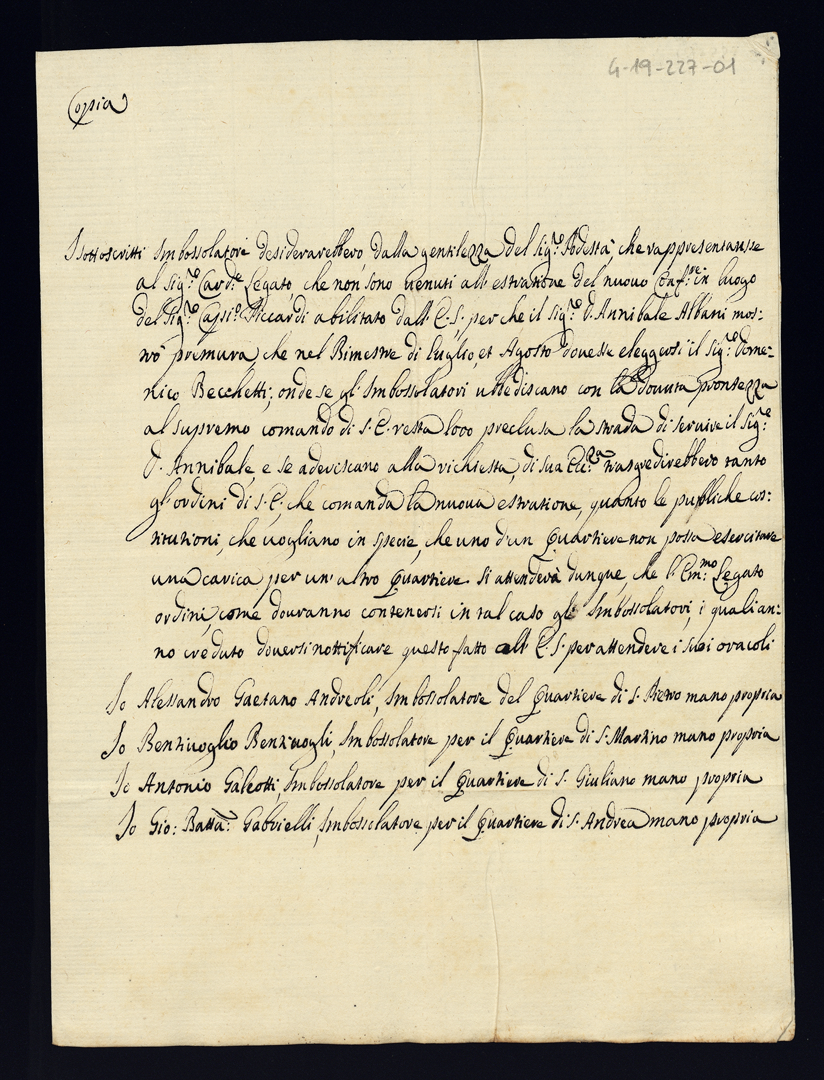 4-19-227-01
Copia
I sottoscritti Imbossolatori desiderarebbero, dalla gentilezza del Sig.re Podestà, che rappresentasse
al Sig.re Card.le Legato, che non sono venuti all'estrazione del nuovo Conf.re in luogo
del Sig.re Riccardi abilitato dall'E. S. perche il Sig.re D. Annibale Albani mos-
trò premura, che nel Bimestre di Luglio, et Agosto dovesse eleggersi il Sig.re Dome-
nico Becchetti; onde se gl'Imbossolatori ubbediscano con la dovuta prontezza
al supremo comando di S. E. resta loro preclusa la strada di servire il Sig.re
D. Annibale, e se aderiscano alla richiesta, di sua Ecc.za trasgredirebbero tanto
gl'ordini di S. E., che comanda la nuova estrazione, quanto le publiche cos-
titutioni, che vogliano in specie, che uno d'un Quartiere non possa esercitare
una carica per un'altro Quartiere. Si attenderà dunque, che l'Em.mo Legato
ordini, come dovranno contenersi in tal caso gl'Imbossolatori, i quali an-
no creduto doversi nottificare questo fatto all'E. S. per attendere i suoi oracoli
Io Alessandro Gaetano Andreoli, Imbossolatore del Quartiere di S. Pietro mano propria
Io Bentivoglio Bentivogli, Imbossolatore per il Quartiere di S. Martino mano propria
Io Antonio Galeotti, Imbossolatore per il Quartiere di S. Giuliano mano propria
Io Gio: Batta: Gabrielli, Imbossolatore per il Quartiere di S. Andrea mano propria